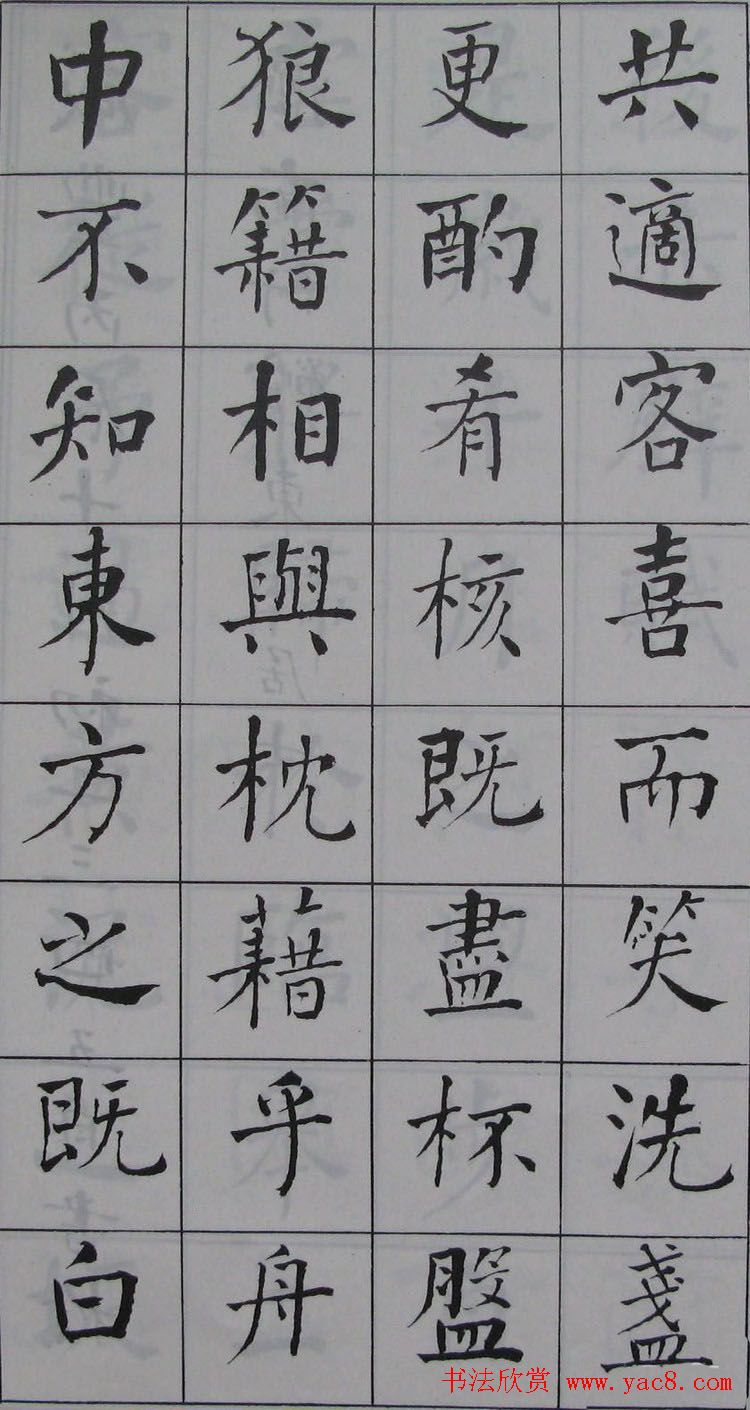 共適客喜而笑洗盞
更酌肴核既盡杯盤
狼籍相與枕藉乎舟
中不知東方之既白
书法欣赏 www.yac8.com